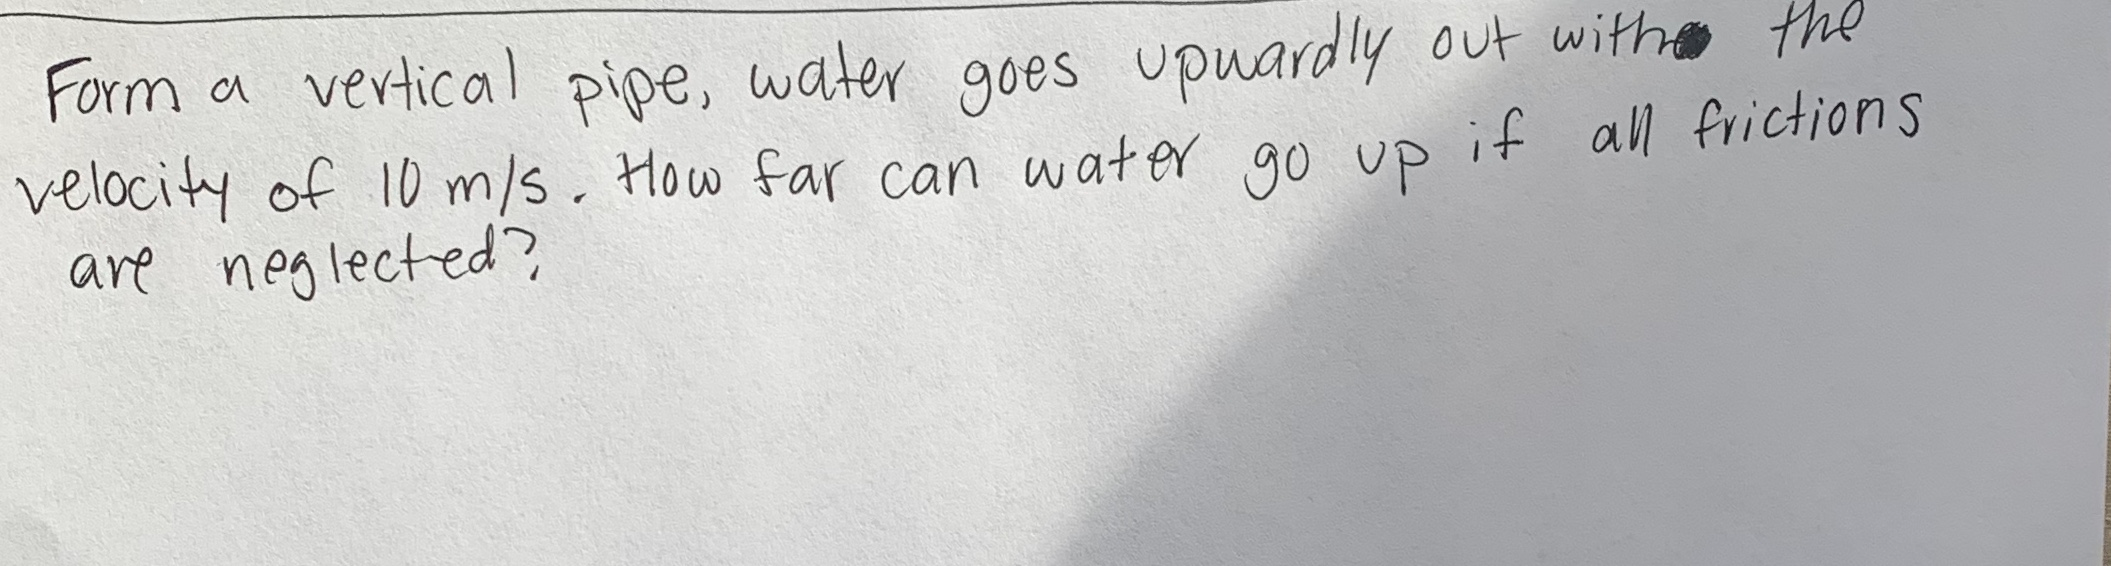 Form a vertical pipe, water goes upwardly out with the
velocity of 10 m/s. How far can water go up if all frictions
are neglected?